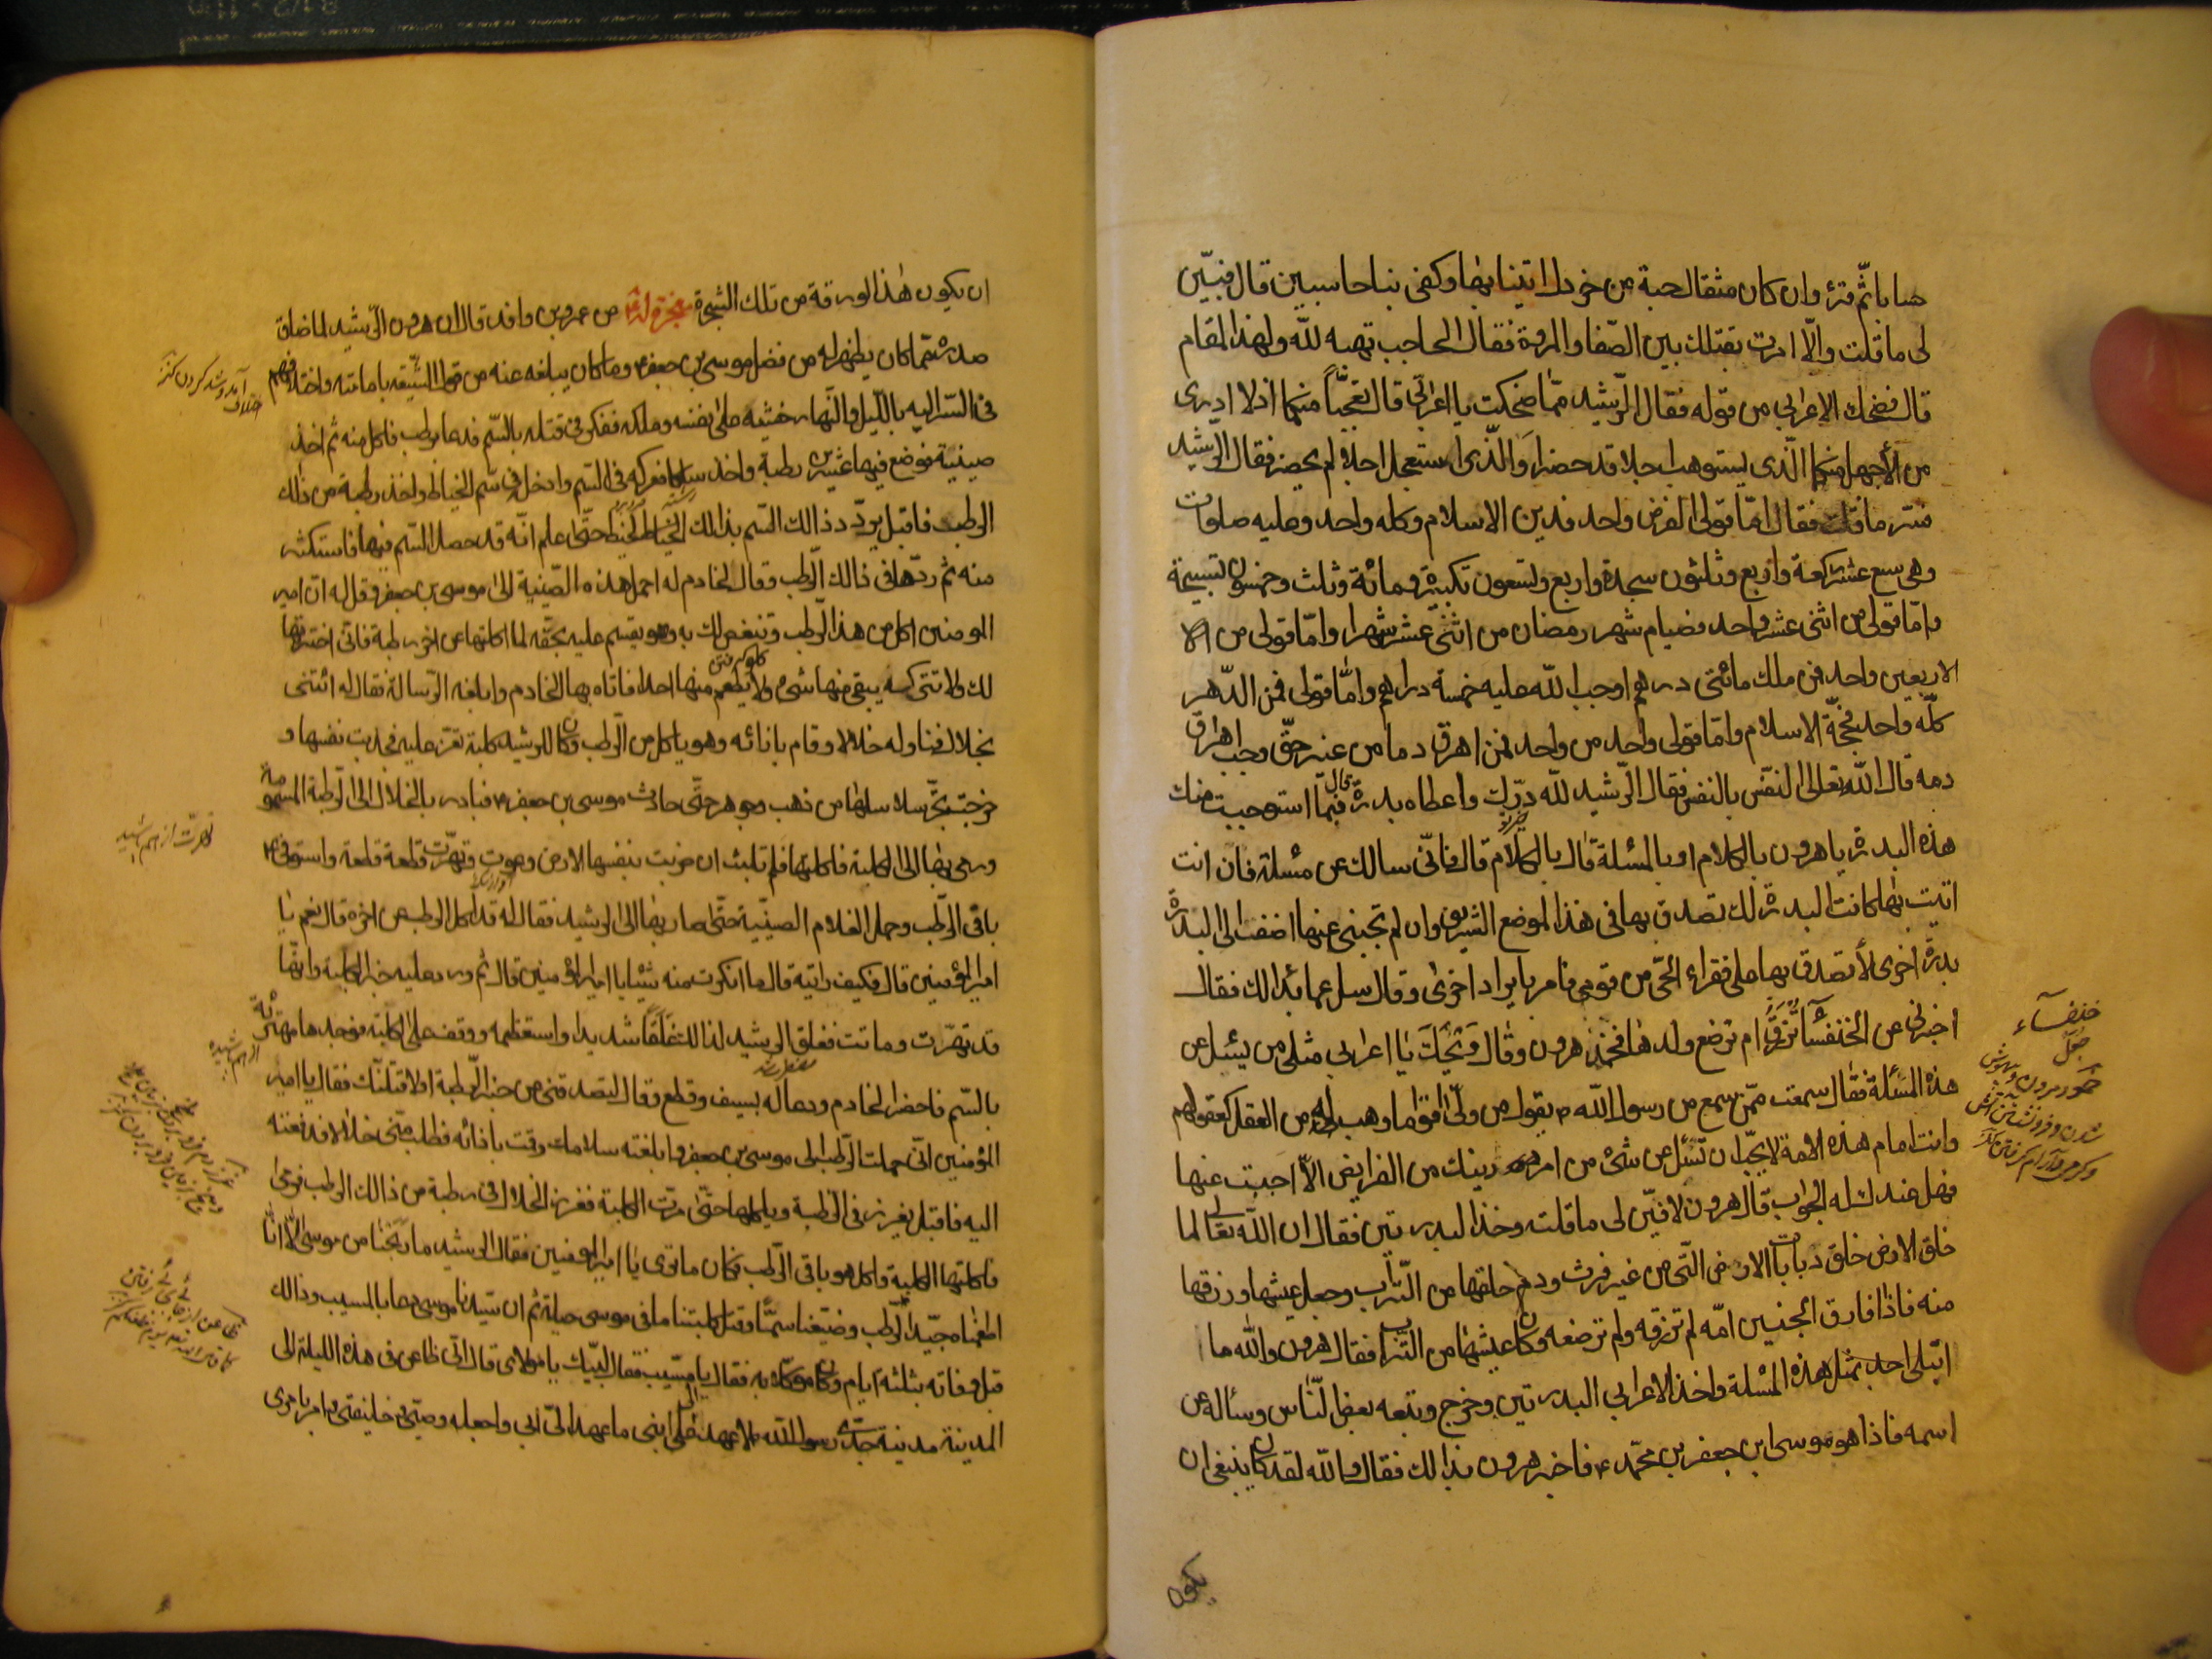 حسابا ثم قرء وان كان مثقال حبة من خردل اتينا بها وكفى بنا حاسبين قال فبيّن
لى ما قلت والّا امرت بقتلك بين الصّفا والمروة فقال الحاجب تهبه للّه ولهذا المقام
قال فضحك الاعرابى من قوله فقال الرّشيد ممّا ضحكت يا اعرابّى قال تعجّباً منكما اذ لا ادرى
من الأجهل منكما الّذى يستوهب اجلا قد حضر او الّذى استعجل اجلا لم يحضر فقال الرّشيد
فسّر ما قلت فقال امّا قولى الفرض واحد فدين الاسلام وكله واحد وعليه صلوات
وهى سبع عشر ركعة واربع وثلثون سجدة واربع وتسعون تكبيرة ومائة وثلث وخمسون تسبيحة
وامّا قولى من اثنى عشر واحد فصيام شهر رمضان من اثنى عشر شهرا وامّا قولى من الا
الاربعين واحد فمن ملك مائتى درهم اوجب اللّه عليه خمسة دراهم وامّا قولى فمن الدّهر
كلّه واحد فحجّة الاسلام وامّا قولى واحد من واحد فمن اهرق دما من غير حقّ وجب اهراق
دمه قال اللّه تعالى النفس بالنفس فقال الرّشيد للّه درّك واعطاه بدرة فقال فبما استوجبت منك
هذه البدرة يا هرون بالكلام او بالمسئلة قال بالكلام قال فانّى سالك عن مسئلة فان انت
اتيت بها كانت البدرة لك تصدق بها فى هذا الموضع الشريف وان لم تجبنى عنها اضفت الى البدرة
بدرة اخرى لأتصدق بها على فقراء الحّى من قومى فامر بايراد اخرى وقال سل عما بدا لك فقال
اخبرنى عن الخنفساء تزقّ ام ترضع ولدها فخرد هرون وقال ويحك يا اعرابى مثلى من يسئل عن
هذه المسئلة فقال سمعت ممّن سمع من رسول اللّه ص يقول من ولّى اقواما وهب له من العقل كعقولهم
وانت امام هذه الامة لا يجب ان تسئل عن شئ من امر دينك من الفرايض الّا اجبت عنها
فهل عندك له الجواب قال هرون لا فبيّن لى ما قلته وخذ البدرتين فقال ان اللّه تعالى لما
خلق الارض خلق دبابات الارض الّتى من غير فرث ودم خلقها من التّراب وجعل عيشها ورزقها
منه فاذا فارق الجنين امّه لم تزقه ولم ترضعه وكان عيشها من التراب فقال هرون واللّه ما
ابتلى احد بمثل هذه المسئلة واخذ الاعرابى البدرتين وخرج وتبعه بعض النّاس وسأله عن
اسمه فاذا هو موسى ابن جعفر بن محمّد ع فاخبر هرون بذالك فقال واللّه لقد كان ينبغى ان
يكون
خنفسآء
جعل
ان يكون هٰذا الورقة من تلك الشجرة معجزة له ع ص عمر بن واقد قال ان هرون الرّشيد لما ضاق
صدره ممّا كان يظهر له من فضل موسى بن جعفر ع وما كان يبلغه عنه من قول الشّيعه بامامته واختلافهم
فى السّر اليه باللّيل والنّهار خشيه على نفسه وملكه ففكر فى قتله بالسّم فدعا برطب فاكل منه ثم اخذ
صينية فوضع فيها عشرين رطبة واخذ سلكا فعركه فى السّم وادخله فى سّم الخياط واخذ رطبة من ذلك
الرطب فاقبل يردّد ذالك السّم بذالك الخيط حتّى علم انّه قد حصل السّم فيها فاستكثر
منه ثم ردّها فى ذالك الرّطب وقال لخادم له احمل هذه الصّينية الى موسى بن جعفر وقل له انّ امير
المومنين اكل من هذا الرّطب وتنغص لك به وهو يقسم عليك بحقّه لما اكلتها عن اخر رطبة فانّى اخترتها
لك ولا تتركه يبقى منها شئ ولا يطعم منها احدا فاتاه بها الخادم وابلغه الرّسالة فقال له ائتنى
بخلال فناوله خلالا وقام بازائه وهو ياكل من الرّطب وكان للرشيد كلبة تعزّ عليه فجذبت نفسها و
خرجت تجّر سلاسلها من ذهب وجوهر حتّى حاذت موسى بن جعفر ع فبادر بالخلال الى الرّطبة المسمومة
ورمى بها الى الكلبة فاكلتها فلم تلبث ان ضربت بنفسها الارض وعوت وتهرّت قطعة قطعة واستوفى ع
باقى الرّطب وحمل الغلام الصينيّة حتّى صار بها الى الرشيد فقال له قد اكل الرطب عن اخره قال نعم يا
امير المؤمنين قال فكيف رايته قال ما انكرت منه شيئا يا امير المؤمنين قال ثم ورد عليه خبر الكلبة وانّها
قد تهرّت وماتت فقلق الرشيد لذالك قلقاً شديدا واستعظمه ووقف على الكلبة فوجدها متهرّئة
بالسّم فاحضر الخادم ودعا له بسيف وقطع وقال لتصدقنى عن خبر الرّطبة او لاقتلنّك فقال يا امير
المؤمنين انّى حملت الرّطب الى موسى بن جعفر وابلغته سلامك وقمت بازائه فطلب منّى خلالا فدفعته
اليه فاقبل يغرز فى الرّطبة وياكلها حتّى مرّت الكلبة فغرز الخلال فى رطبة من ذالك الرطب فرمى
فاكلتها الكلبة واكل هو باقى الرّطب فكان ما ترى يا امير المومنين فقال الرشيد ما ربحنا من موسى الّا انّا
اطعمناه جيّد الرّطب وضيّعنا سمّنا وقتل كلبتنا ما فى موسى حيلة ثم ان سيدنا موسى دعا بالمسيب وذالك
قبل وفاته بثلثه ايام وكان موكّلا به فقال يا مسّيب فقال لبّيك يا مولاى قال انّى ظاعن فى هذه الليلة الى
المدينة مدينة جدّى رسول اللّه لاعهد الى علىّ ابنى ما عهد الىّ ابى واجعله وصيّى وخليفتى وامره بامرى